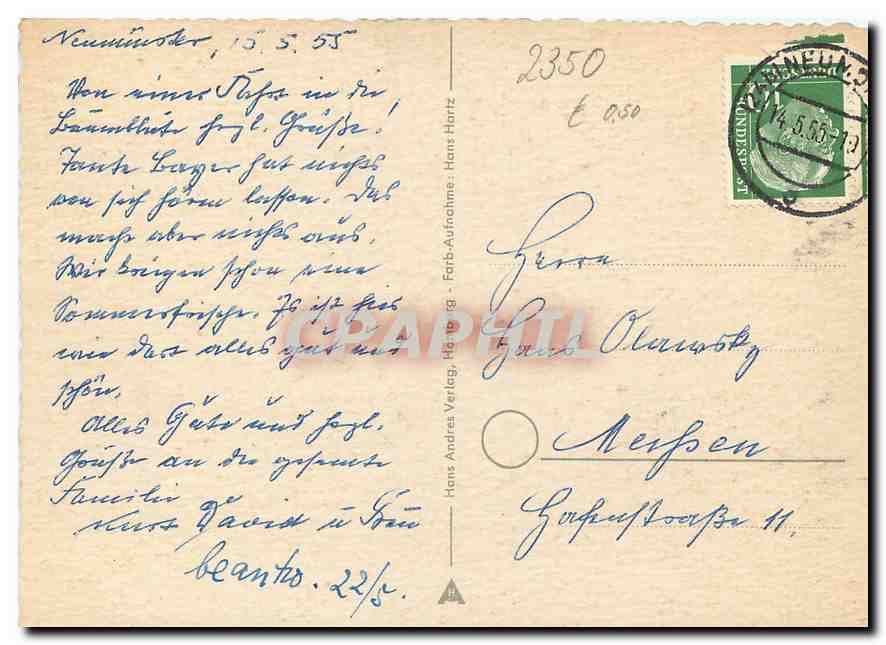 Neumünster, 15.5.55
Von einer Fahrt in die
Baumblüte hrzl. Grüße!
Tante Bayer hat nichts
von sich hören lassen. Das
macht aber nichts aus.
Wir kriegen schon eine
Sommerfrische. Es ist hier
wie dort alles gut und
schön.
Alles Gute und hrzl.
Grüße an die gesamte
Familie
Kurt David u. Frau
beantw. 22/5.
Hans Andres Verlag, Hamburg - Farb-Aufnahme: Hans Hartz
2350
€ 0,50
BUNDESPOST
14.5.55.-19
Herrn
Hans Olawsky
Meißen
Hafenstraße 11.
CPAPHIL